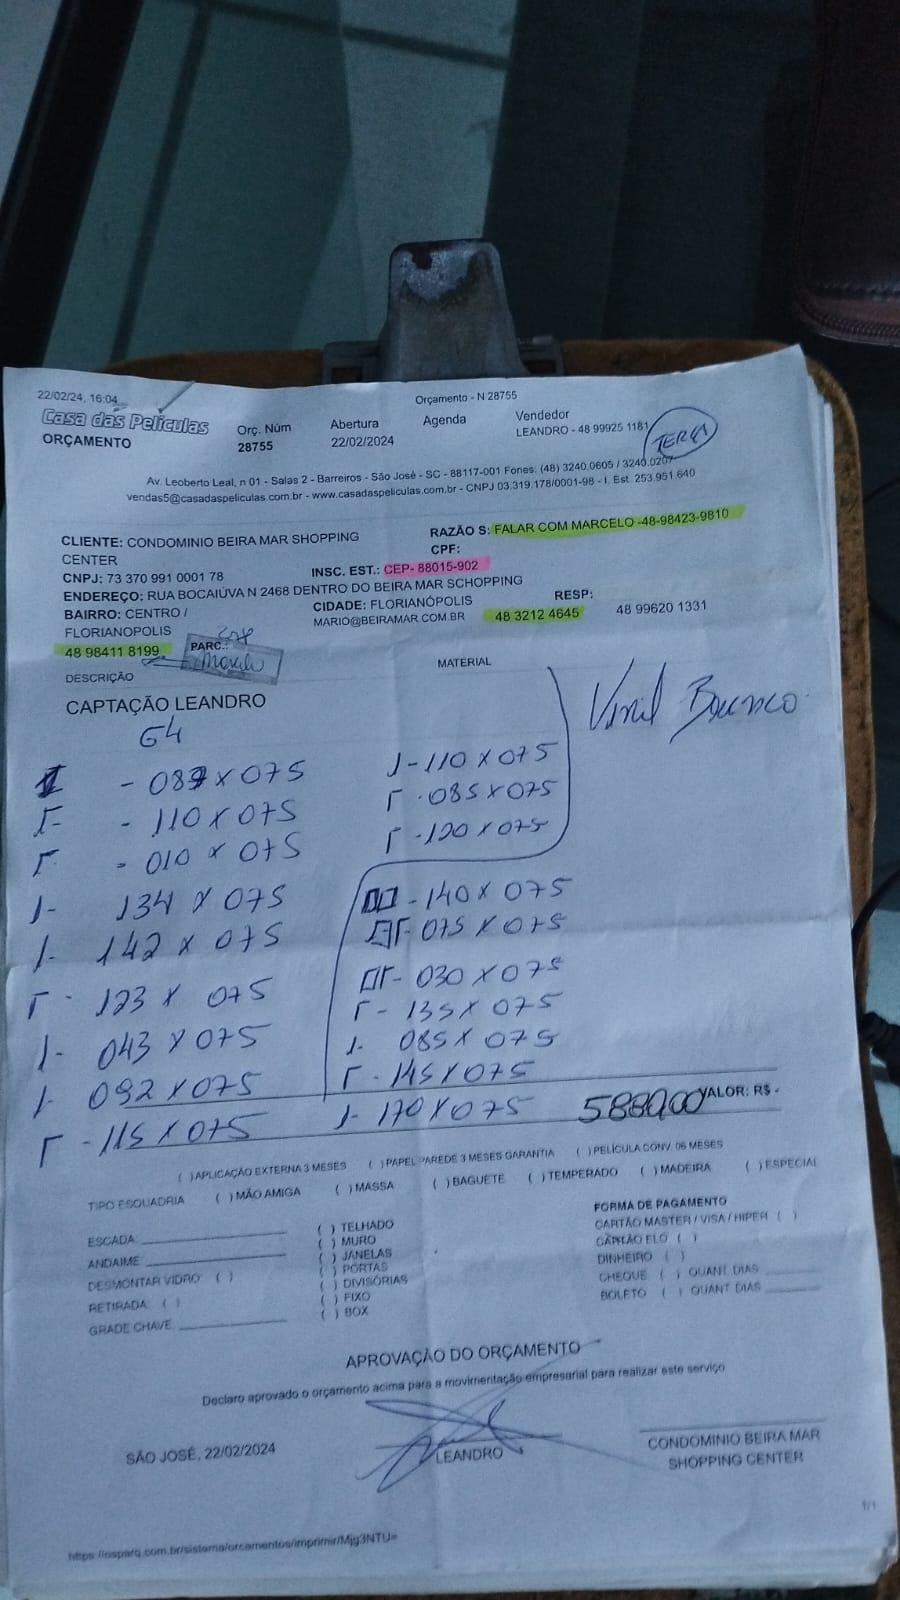 22/02/24, 16:04
Orçamento - N 28755
Casa das Películas
ORÇAMENTO
Orç. Núm
28755
Abertura
22/02/2024
Agenda
Vendedor
LEANDRO - 48 99925 1181
TERÇA
Av. Leoberto Leal, n 01 - Salas 2 - Barreiros - São José - SC - 88117-001 Fones: (48) 3240.0605 / 3240.0207
vendas5@casadaspeliculas.com.br - www.casadaspeliculas.com.br - CNPJ 03.319.178/0001-98 - I. Est. 253.951.640
CLIENTE: CONDOMINIO BEIRA MAR SHOPPING
CENTER
RAZÃO S: FALAR COM MARCELO -48-98423-9810
CPF:
CNPJ: 73 370 991 0001 78
INSC. EST.: CEP- 88015-902
ENDEREÇO: RUA BOCAIÚVA N 2468 DENTRO DO BEIRA MAR SCHOPPING
BAIRRO: CENTRO /
FLORIANOPOLIS
CIDADE: FLORIANÓPOLIS
MARIO@BEIRAMAR.COM.BR
RESP:
48 3212 4645
48 99620 1331
48 98411 8199
PARC.:
DESCRIÇÃO
MATERIAL
CAPTAÇÃO LEANDRO
Vinil Branco
G4
075
J-110 X 075
- 110 X 075
085 X 075
- 010 X 075
-120 X 075
134 X 075
-140 X 075
142 X 075
075 X 075
123 X 075
030 X 075
135 X 075
043 X 075
085 X 075
092 X 075
145 X 075
115 X 075
170 X 075
5880,00
VALOR: R$ -
( )APLICAÇÃO EXTERNA 3 MESES ( )PAPEL PAREDE 3 MESES GARANTIA ( )PELÍCULA CONV. 06 MESES
TIPO ESQUADRIA ( )MÃO AMIGA ( )MASSA ( )BAGUETE ( )TEMPERADO ( )MADEIRA ( )ESPECIAL
ESCADA:
ANDAIME:
DESMONTAR VIDRO: ( )
RETIRADA: ( )
GRADE CHAVE:
( ) TELHADO
( ) MURO
( ) JANELAS
( ) PORTAS
( ) DIVISÓRIAS
( ) FIXO
( ) BOX
FORMA DE PAGAMENTO
CARTÃO MASTER / VISA / HIPER ( )
CARTÃO ELO ( )
DINHEIRO ( )
CHEQUE ( ) QUANT DIAS
BOLETO ( ) QUANT DIAS
APROVAÇÃO DO ORÇAMENTO
Declaro aprovado o orçamento acima para a movimentação empresarial para realizar este serviço
SÃO JOSÉ, 22/02/2024
LEANDRO
CONDOMINIO BEIRA MAR
SHOPPING CENTER
1/1
https://osparq.com.br/sistema/orcamentos/imprimir/Mjg3NTU=